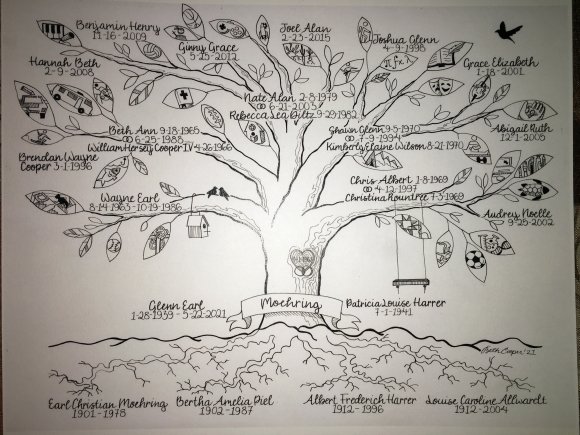 Benjamin Henry
11-16-2009
Ginny Grace
5-25-2012
Joel Alan
2-23-2015
Joshua Glenn
4-9-1998
Hannah Beth
2-9-2008
Grace Elizabeth
1-18-2001
π f(x) λ
Nate Alan 2-8-1979
6-21-2003
Rebecca Lea Diltz 9-29-1982
Beth Ann 9-18-1965
6-25-1988
William Horsey Cooper IV 4-26-1966
Shawn Glenn 9-5-1970
7-9-1994
Kimberly Elaine Wilson 8-21-1970
Abigail Ruth
12-1-2005
Brendan Wayne
Cooper 3-1-1996
Chris Albert 1-8-1969
4-12-1997
Christina Rountree 7-3-1969
Wayne Earl
8-14-1963 - 10-19-1986
Audrey Noelle
9-25-2002
Glenn Earl
1-28-1939 - 5-22-2021
Moehring
Patricia Louise Harrer
7-1-1941
Beth Cooper '21
Earl Christian Moehring
1901-1978
Bertha Amelia Piel
1902-1987
Albert Frederich Harrer
1912-1996
Louise Caroline Allwardt
1912-2004